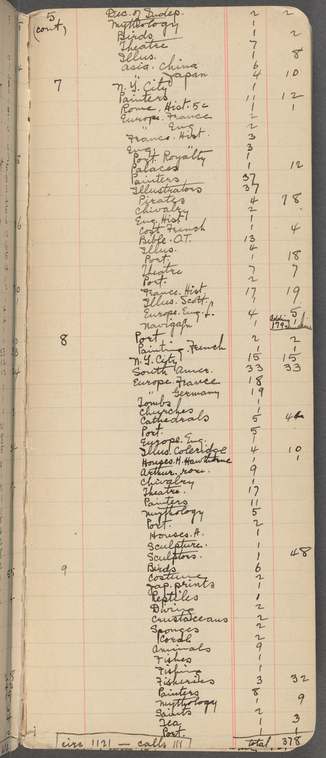 5 Dec. of Indep. 2 2
(cont) Mythology 1
Birds 1 2
Theatre 7
Illus. 1 8
Asia. China 6
" Japan 4 10
7 N.Y. City 1 1
Painters 11 12
Rome, Hist. 5c 1 1
Europe. France 2
" Eng. 2
France. Hist. 3
Eng. 3
Port. Royalty 1
Palaces 1 12
Painters 37
Illustrators 37
Pirates 4 78
Chivalry 2
Eng. Hist. 1
Cost. French 1 4
Bible. O.T. 13
Illus. 4
Port. 1 18
Theatre 7 7
Port. 2
France. Hist. 17 19
Illus. Scott. 1
Europe. Eng. 4 5
Navigat 1 179
8 Port 2 2
Painting. French 1 1
N.Y. City 15 15
South Amer. 33 33
Europe. France 18
" Germany 19
Tombs 1
Churches 1
Cathedrals 5 44
Port. 5
Europe. Eng. 1
Illus. Coleridge 4 10
Houses. H. Hawthorne 1 1
Arthur. rom. 9
Chivalry 1
Theatre. 17
Painters 11
Mythology 5
Port. 2
Houses. A. 1
Sculpture. 1
Sculptors. 1 48
9 Birds 6
Costume 2
Jap. prints 1
Reptiles 1
Diving 2
Crustaceans 2
Sponges 2
Coral 2
Animals 9
Fishes 1
Fishing 1
Fisheries 3 32
Painters 8
Mythology 1 9
Saints 2
Tea 1 3
Port. 1 1
circ 1121 — calls 111 total 378